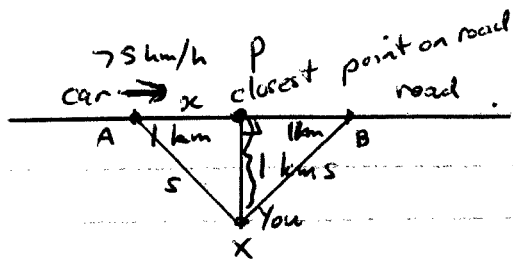 75 km/h P
car → x closest point on road
road
A 1 km 1km B
1 km
s s
You
X